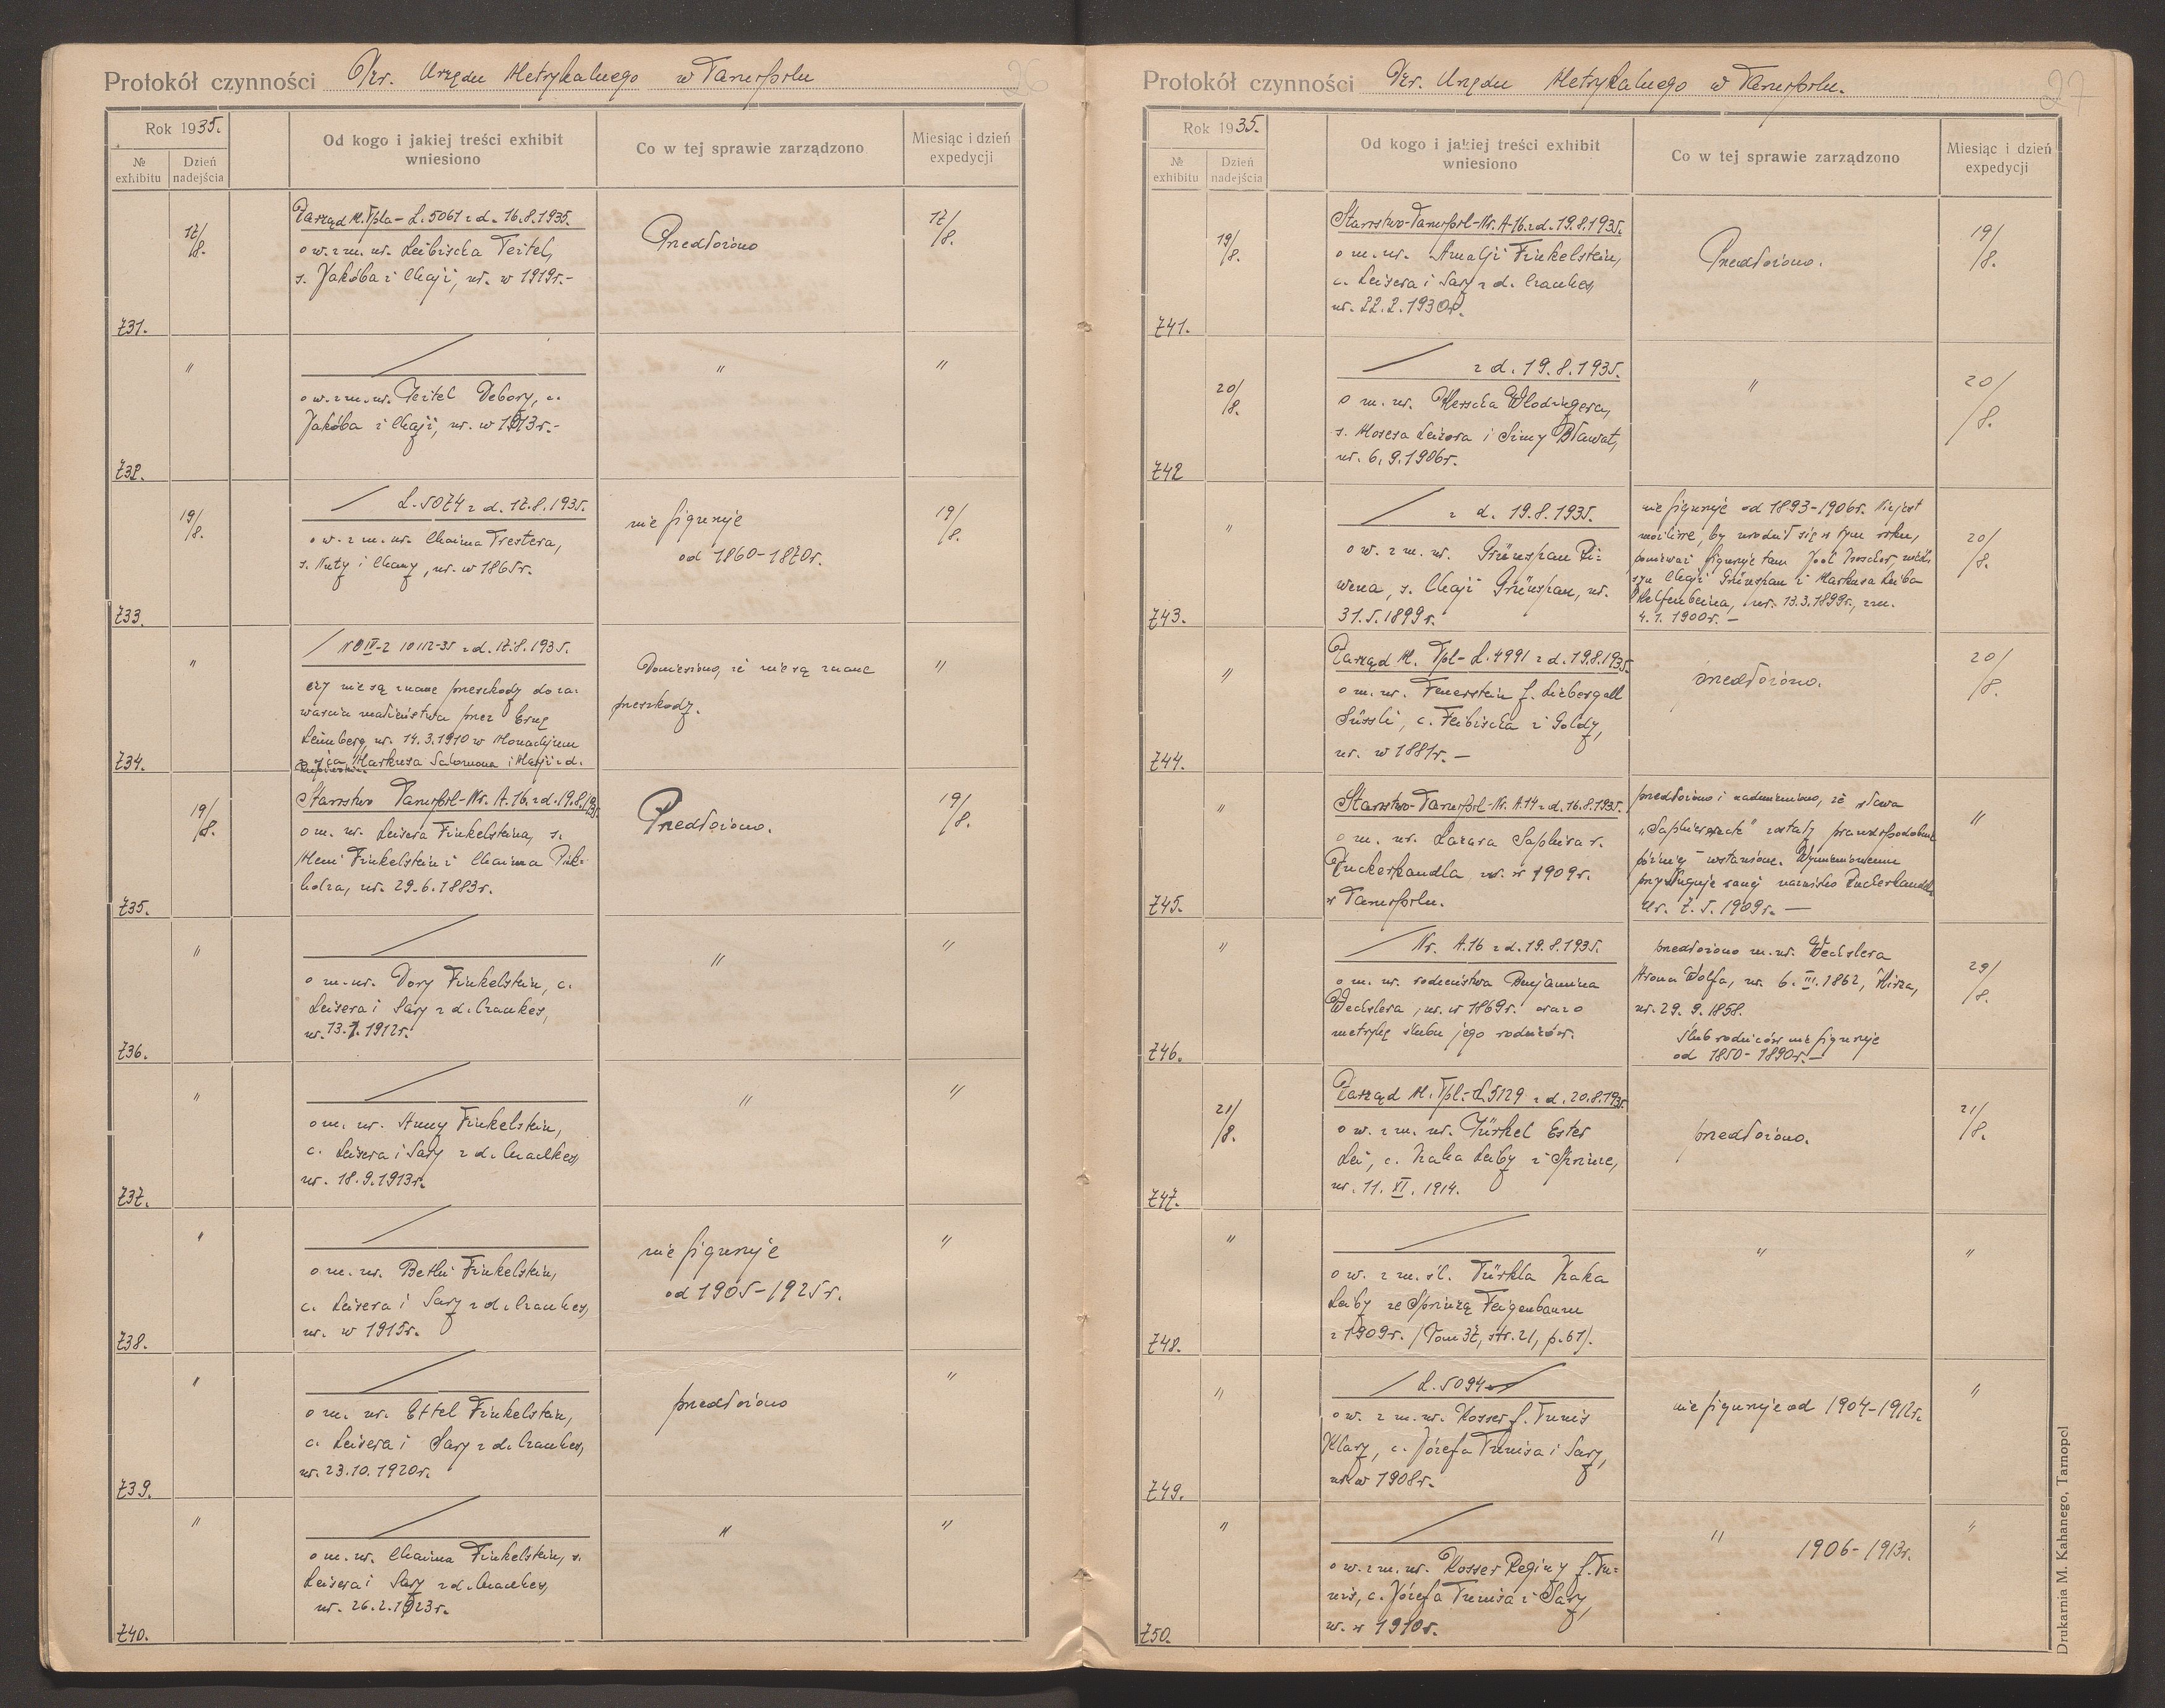 Protokół czynności Izr. Urzędu Metrykalnego w Tarnopolu
26
Rok 1935.
№ exhibitu
Dzień nadejścia
Od kogo i jakiej treści exhibit
wniesiono
Co w tej sprawie zarządzono
Miesiąc i dzień
expedycji
731.
17/8.
Zarząd M. Tpla - L. 5061 z d. 16.8.1935.
o w. z m. ur. Leibischa Teitel,
s. Jakóba i Chaji, ur. w 1919r.-
Przedłożono
17/8.
732.
"
o w. z m. ur. Teitel Debory, c.
Jakóba i Chaji, ur. w 1913r.-
"
"
733.
19/8.
L. 5074 z d. 17.8.1935.
o w. z m. ur. Chaima Trestera,
s. Nuty i Chany, ur. w 1865r.
nie figuruje
od 1860-1870r.
19/8.
734.
"
z d. 17.8.1935.
czy nie są znane przeszkody do za-
warcia małżeństwa przez Ernę
Leinberg, ur. 14.3.1910 w
Markusa Salomona i z d.
Doniesiono, że nie są znane
przeszkody.
"
735.
19/8.
Starostwo Tarnopol - Nr. A.16. z d. 19.8.1935.
o m. ur. Leisera Finkelsteina, s.
Meni Finkelstein i Chaima Pink-
holza, ur. 29.6.1883r.
Przedłożono.
19/8.
736.
"
o m. ur. Dory Finkelstein, c.
Leisera i Sary z d. Czaczkes,
ur. 13.7.1912r.
"
"
737.
"
o m. ur. Anny Finkelstein,
c. Leisera i Sary z d. Czaczkes,
ur. 18.9.1913r.
"
"
738.
"
o m. ur. Bethi Finkelstein,
c. Leisera i Sary z d. Czaczkes,
ur. w 1915r.
nie figuruje
od 1905-1925r.
"
739.
"
o m. ur. Ettel Finkelstein,
c. Leisera i Sary z d. Czaczkes,
ur. 23.10.1920r.
przedłożono
"
740.
"
o m. ur. Chaima Finkelstein, s.
Leisera i Sary z d. Czaczkes,
ur. 26.2.1923r.
"
"
Protokół czynności Izr. Urzędu Metrykalnego w Tarnopolu.
27
Rok 1935.
№ exhibitu
Dzień nadejścia
Od kogo i jakiej treści exhibit
wniesiono
Co w tej sprawie zarządzono
Miesiąc i dzień
expedycji
741.
19/8.
Starostwo-Tarnopol-Nr. A-16. z d. 19.8.1935.
o m. ur. Amalji Finkelstein,
c. Leisera i Sary z d. Czaczkes,
ur. 22.2.1930r.
Przedłożono.
19/8.
742
20/8.
z d. 19.8.1935.
o m. ur. Herscha Włodingera,
s. Mosesa Leizora i Simy Bławat,
ur. 6.9.1906r.
"
20/8.
743.
"
z d. 19.8.1935.
o w. z m. ur. Grünspan Ri-
wena, s. Chaji Grünspan, ur.
31.5.1899r.
nie figuruje od 1893-1906r. Nie jest
możliwe, by urodził się w tym roku,
ponieważ figuruje tam Joel
syn Chaji Grünspan i Markusa Leiba
Helfenbeina, ur. 13.3.1899r., zm.
4.1.1900r.-
20/8.
744.
"
Zarząd M. Tpl- L. 4991 z d. 19.8.1935.
o m. ur. Feuerstein f. Liebergall
Süssli, c. Feibischa i Goldy,
ur. w 1881r.-
przedłożono.
20/8.
745.
"
Starostwo-Tarnopol-Nr. A.14 z d. 16.8.1935.
o m. ur. Lazara Saphira r.
Zuckerkandla ur. w 1909r.
w Tarnopolu.
przedłożono i nadmieniono, że słowa
zostały prawdopodobnie
później wstawione. Wymienionemu
przysługuje raczej nazwisko Zuckerkandel
ur. 7.5.1909r.-
"
746.
"
Nr. A.16 z d. 19.8.1935.
o m. ur. rodzeństwa Benjamina
Wechslera, ur. w 1869r. oraz o
metrykę ślubu jego rodziców.
przedłożono m. ur. Wechslera
Arona Wolfa, ur. 6.III.1862, Hirza,
ur. 29.9.1858.
Ślub rodziców nie figuruje
od 1850-1890r.-
29/8.
747.
21/8.
Zarząd M. Tpl.- L. 5129 z d. 20.8.1935.
o w. z m. ur. Türkel Ester
Lei, c. Izaka Leiby i Sprinze,
ur. 11.XI.1914.
przedłożono.
21/8.
748.
"
o w. z m. śl. Türkla Izaka
Leiby ze Sprinzą Feigenbaum
z 1909r. (Tom 37, str. 21, p. 61).
"
"
749.
"
L. 5094
o w. z m. ur. Kosser f. Tunis
Klary, c. Józefa Tunisa i Sary,
ur. w 1908r.
nie figuruje od 1904-1912r.
"
750.
"
o w. z m. ur. Kosser Reginy f. Tu-
nis, c. Józefa Tunisa i Sary,
ur. w 1910r.
" 1906-1913r.
"
Drukarnia M. Kahanego, Tarnopol